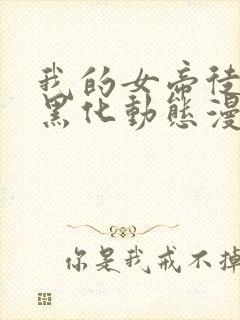 我的女帝徒
黑化動態漫
你是我戒不掉